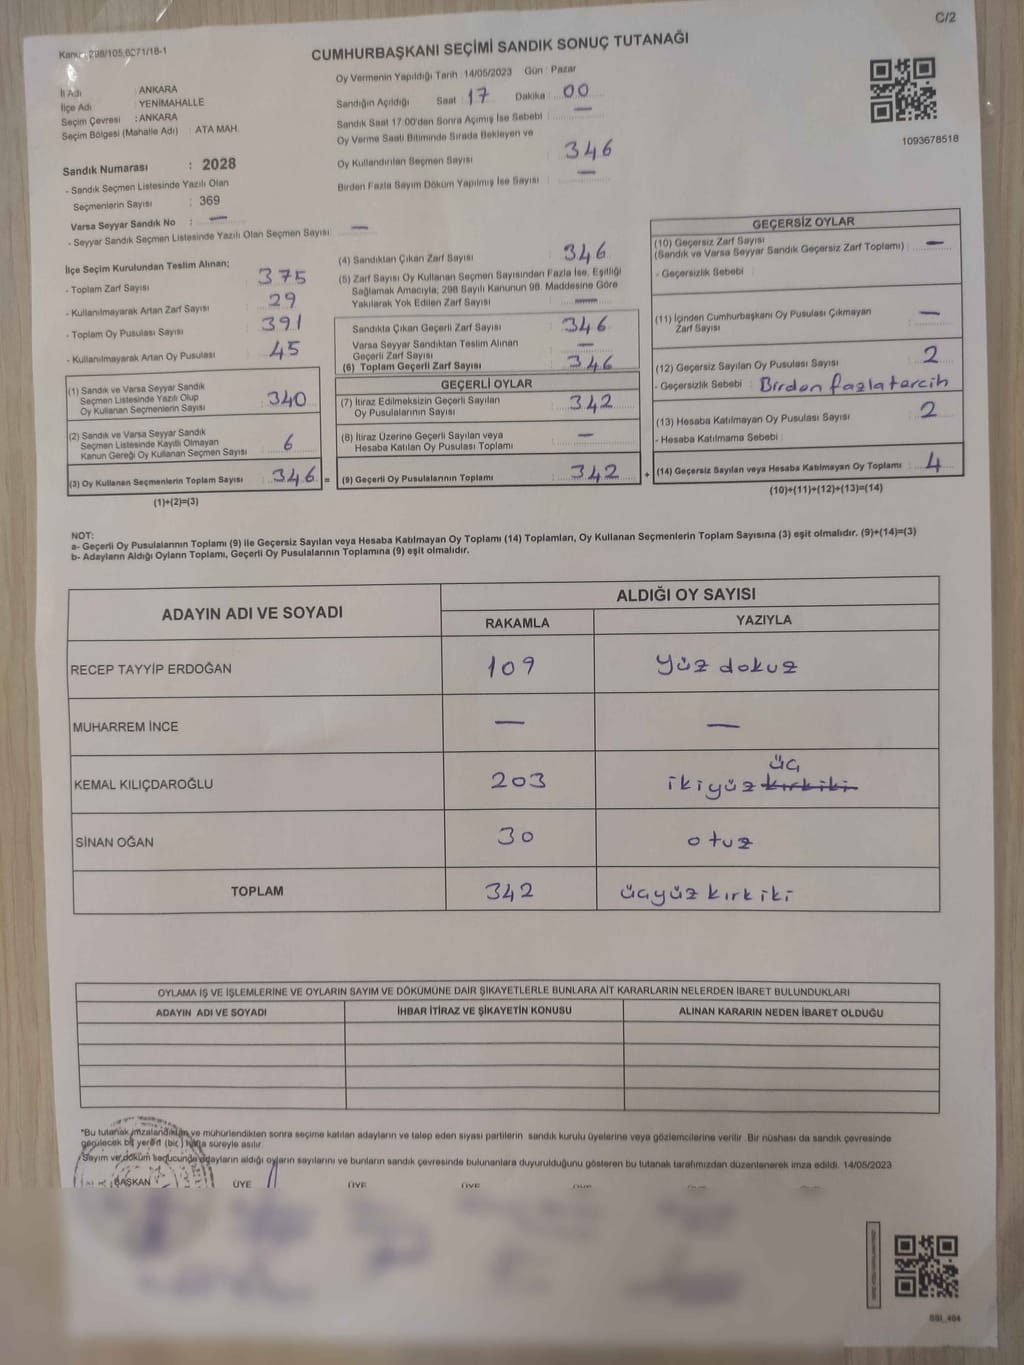 C/2
Kanun: 298/105,6271/18-1
CUMHURBAŞKANI SEÇİMİ SANDIK SONUÇ TUTANAĞI
Oy Vermenin Yapıldığı Tarih : 14/05/2023 Gün : Pazar
İl Adı : ANKARA
İlçe Adı : YENİMAHALLE
Seçim Çevresi : ANKARA
Seçim Bölgesi (Mahalle Adı) : ATA MAH.
Sandığın Açıldığı Saat : 17 Dakika : 00
Sandık Saat 17:00'den Sonra Açılmış İse Sebebi : —
Oy Verme Saati Bitiminde Sırada Bekleyen ve
Oy Kullandırılan Seçmen Sayısı : 346
Birden Fazla Sayım Döküm Yapılmış İse Sayısı : —
1093678518
Sandık Numarası : 2028
- Sandık Seçmen Listesinde Yazılı Olan
Seçmenlerin Sayısı : 369
Varsa Seyyar Sandık No : —
- Seyyar Sandık Seçmen Listesinde Yazılı Olan Seçmen Sayısı: —
İlçe Seçim Kurulundan Teslim Alınan;
- Toplam Zarf Sayısı : 375
- Kullanılmayarak Artan Zarf Sayısı : 29
- Toplam Oy Pusulası Sayısı : 391
- Kullanılmayarak Artan Oy Pusulası : 45
(1) Sandık ve Varsa Seyyar Sandık
Seçmen Listesinde Yazılı Olup
Oy Kullanan Seçmenlerin Sayısı : 340
(2) Sandık ve Varsa Seyyar Sandık
Seçmen Listesinde Kayıtlı Olmayan
Kanun Gereği Oy Kullanan Seçmen Sayısı : 6
(3) Oy Kullanan Seçmenlerin Toplam Sayısı : 346 =
(1)+(2)=(3)
(4) Sandıktan Çıkan Zarf Sayısı : 346
(5) Zarf Sayısı Oy Kullanan Seçmen Sayısından Fazla İse, Eşitliği
Sağlamak Amacıyla, 298 Sayılı Kanunun 98. Maddesine Göre
Yakılarak Yok Edilen Zarf Sayısı : —
Sandıkta Çıkan Geçerli Zarf Sayısı : 346
Varsa Seyyar Sandıktan Teslim Alınan
Geçerli Zarf Sayısı : —
(6) Toplam Geçerli Zarf Sayısı : 346
GEÇERLİ OYLAR
(7) İtiraz Edilmeksizin Geçerli Sayılan
Oy Pusulalarının Sayısı : 342
(8) İtiraz Üzerine Geçerli Sayılan veya
Hesaba Katılan Oy Pusulası Toplamı : —
(9) Geçerli Oy Pusulalarının Toplamı : 342 +
GEÇERSİZ OYLAR
(10) Geçersiz Zarf Sayısı
(Sandık ve Varsa Seyyar Sandık Geçersiz Zarf Toplamı) : —
- Geçersizlik Sebebi :
(11) İçinden Cumhurbaşkanı Oy Pusulası Çıkmayan
Zarf Sayısı : —
(12) Geçersiz Sayılan Oy Pusulası Sayısı : 2
- Geçersizlik Sebebi : Birden fazla tercih
(13) Hesaba Katılmayan Oy Pusulası Sayısı : 2
- Hesaba Katılmama Sebebi :
(14) Geçersiz Sayılan veya Hesaba Katılmayan Oy Toplamı : 4
(10)+(11)+(12)+(13)=(14)
NOT:
a- Geçerli Oy Pusulalarının Toplamı (9) ile Geçersiz Sayılan veya Hesaba Katılmayan Oy Toplamı (14) Toplamları, Oy Kullanan Seçmenlerin Toplam Sayısına (3) eşit olmalıdır. (9)+(14)=(3)
b- Adayların Aldığı Oyların Toplamı, Geçerli Oy Pusulalarının Toplamına (9) eşit olmalıdır.
ADAYIN ADI VE SOYADI ALDIĞI OY SAYISI
RAKAMLA YAZIYLA
RECEP TAYYİP ERDOĞAN 109 yüz dokuz
MUHARREM İNCE — —
KEMAL KILIÇDAROĞLU 203 ikiyüz kırkiki üç
SİNAN OĞAN 30 otuz
TOPLAM 342 üçyüz kırkiki
OYLAMA İŞ VE İŞLEMLERİNE VE OYLARIN SAYIM VE DÖKÜMÜNE DAİR ŞİKAYETLERLE BUNLARA AİT KARARLARIN NELERDEN İBARET BULUNDUKLARI
ADAYIN ADI VE SOYADI İHBAR İTİRAZ VE ŞİKAYETİN KONUSU ALINAN KARARIN NEDEN İBARET OLDUĞU
*Bu tutanak imzalandıktan ve mühürlendikten sonra seçime katılan adayların ve talep eden siyasi partilerin sandık kurulu üyelerine veya gözlemcilerine verilir. Bir nüshası da sandık çevresinde
görülecek bir yerde (bir) hafta süreyle asılır.
Sayım ve döküm sonucunda adayların aldığı oyların sayılarını ve bunların sandık çevresinde bulunanlara duyurulduğunu gösteren bu tutanak tarafımızdan düzenlenerek imza edildi. 14/05/2023
BAŞKAN ÜYE ÜYE ÜYE